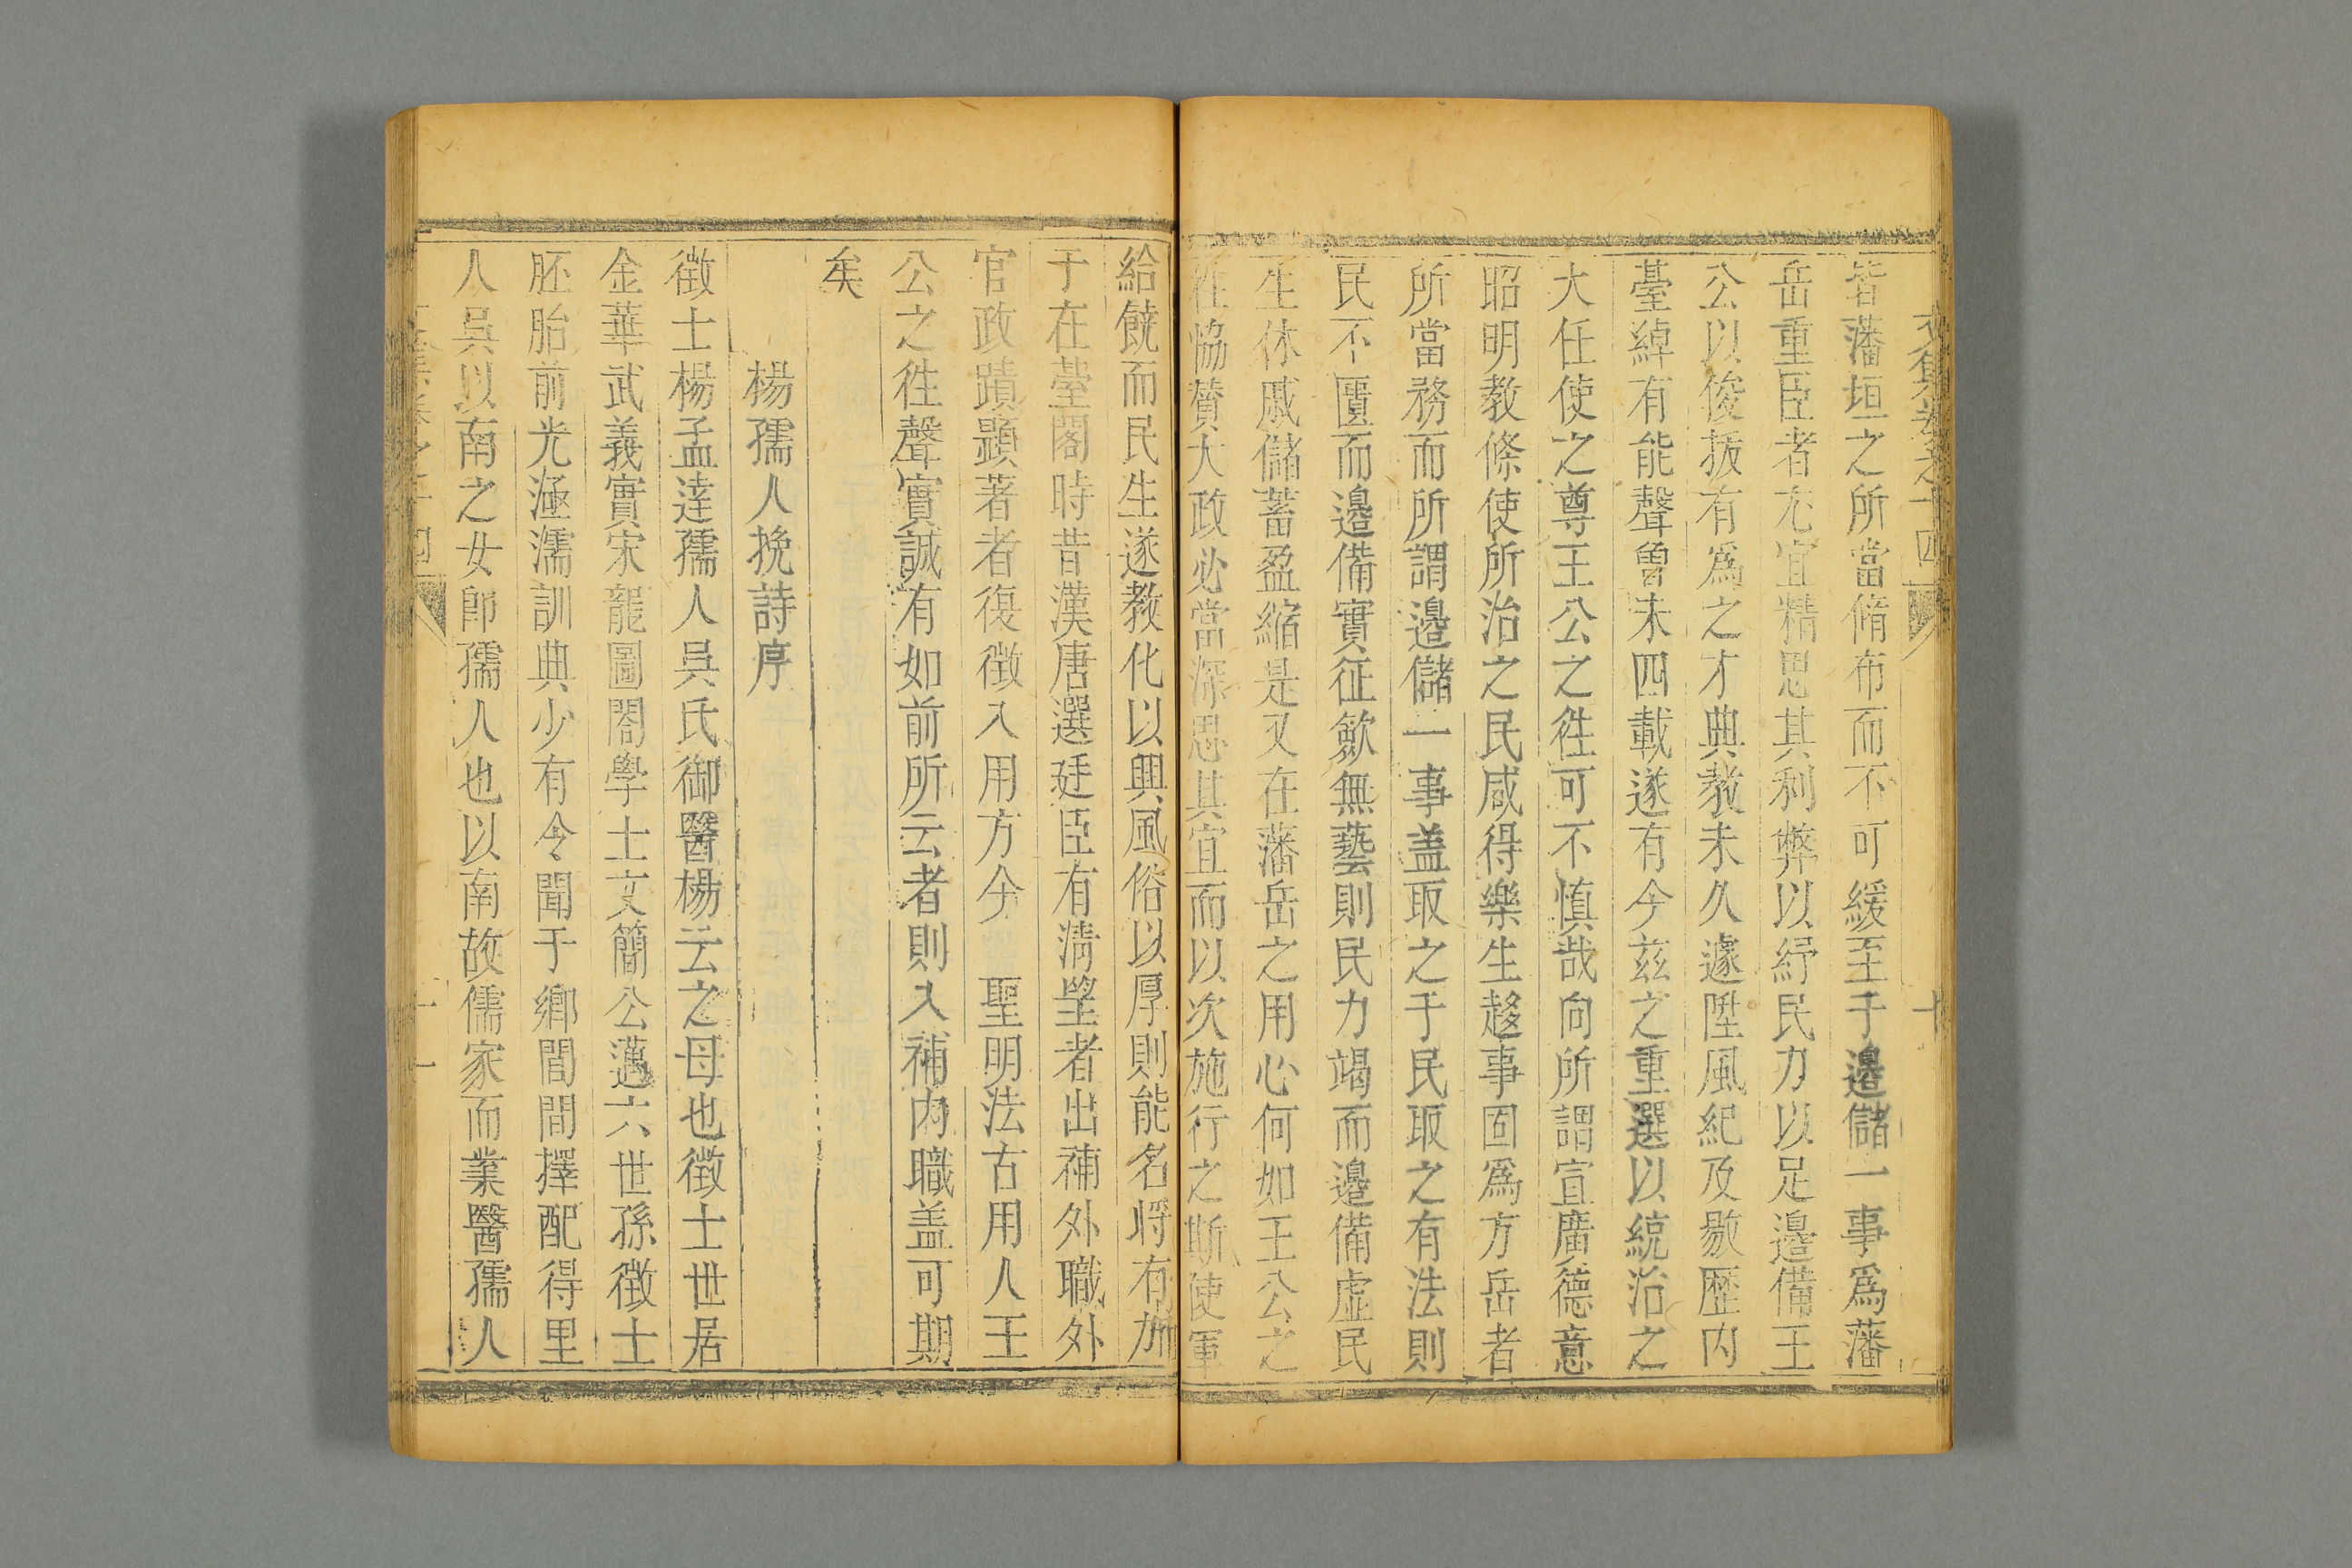 文集卷之十四 十
皆藩垣之所當脩布而不可緩至于邊儲一事爲藩
岳重臣者尤宜精思其利弊以紓民力以足邊備王
公以俊拔有爲之才典教未久遽陞風紀及敭歷内
臺綽有能聲曽未四載遂有今兹之重選以綂治之
大任使之尊王公之徃可不慎哉向所謂宣廣德意
昭明教條使所治之民咸得樂生趍事固爲方岳者
所當務而所謂邊儲一事盖取之于民取之有法則
民不匱而邊備實征歛無藝則民力竭而邊備虚民
生休戚儲蓄盈縮是又在藩岳之用心何如王公之
徃恊賛大政必當深思其宜而以次施行之斯使軍
給饒而民生遂教化以興風俗以厚則能名將有加
于在臺閣時昔漢唐選廷臣有清望者出補外職外
官政蹟顕著者復徴入用方今 聖明法古用人王
公之徃聲實誠有如前所云者則入補内職盖可期
矣
楊孺人挽詩序
徴士楊孟逹孺人吳氏御醫楊云之母也徴士世居
金華武義實宋龍圖閣學士文簡公邁六世孫徴士
胚胎前光涵濡訓典少有令聞于鄉閭間擇配得里
人吳以南之女即孺人也以南故儒家而業醫孺人
十一